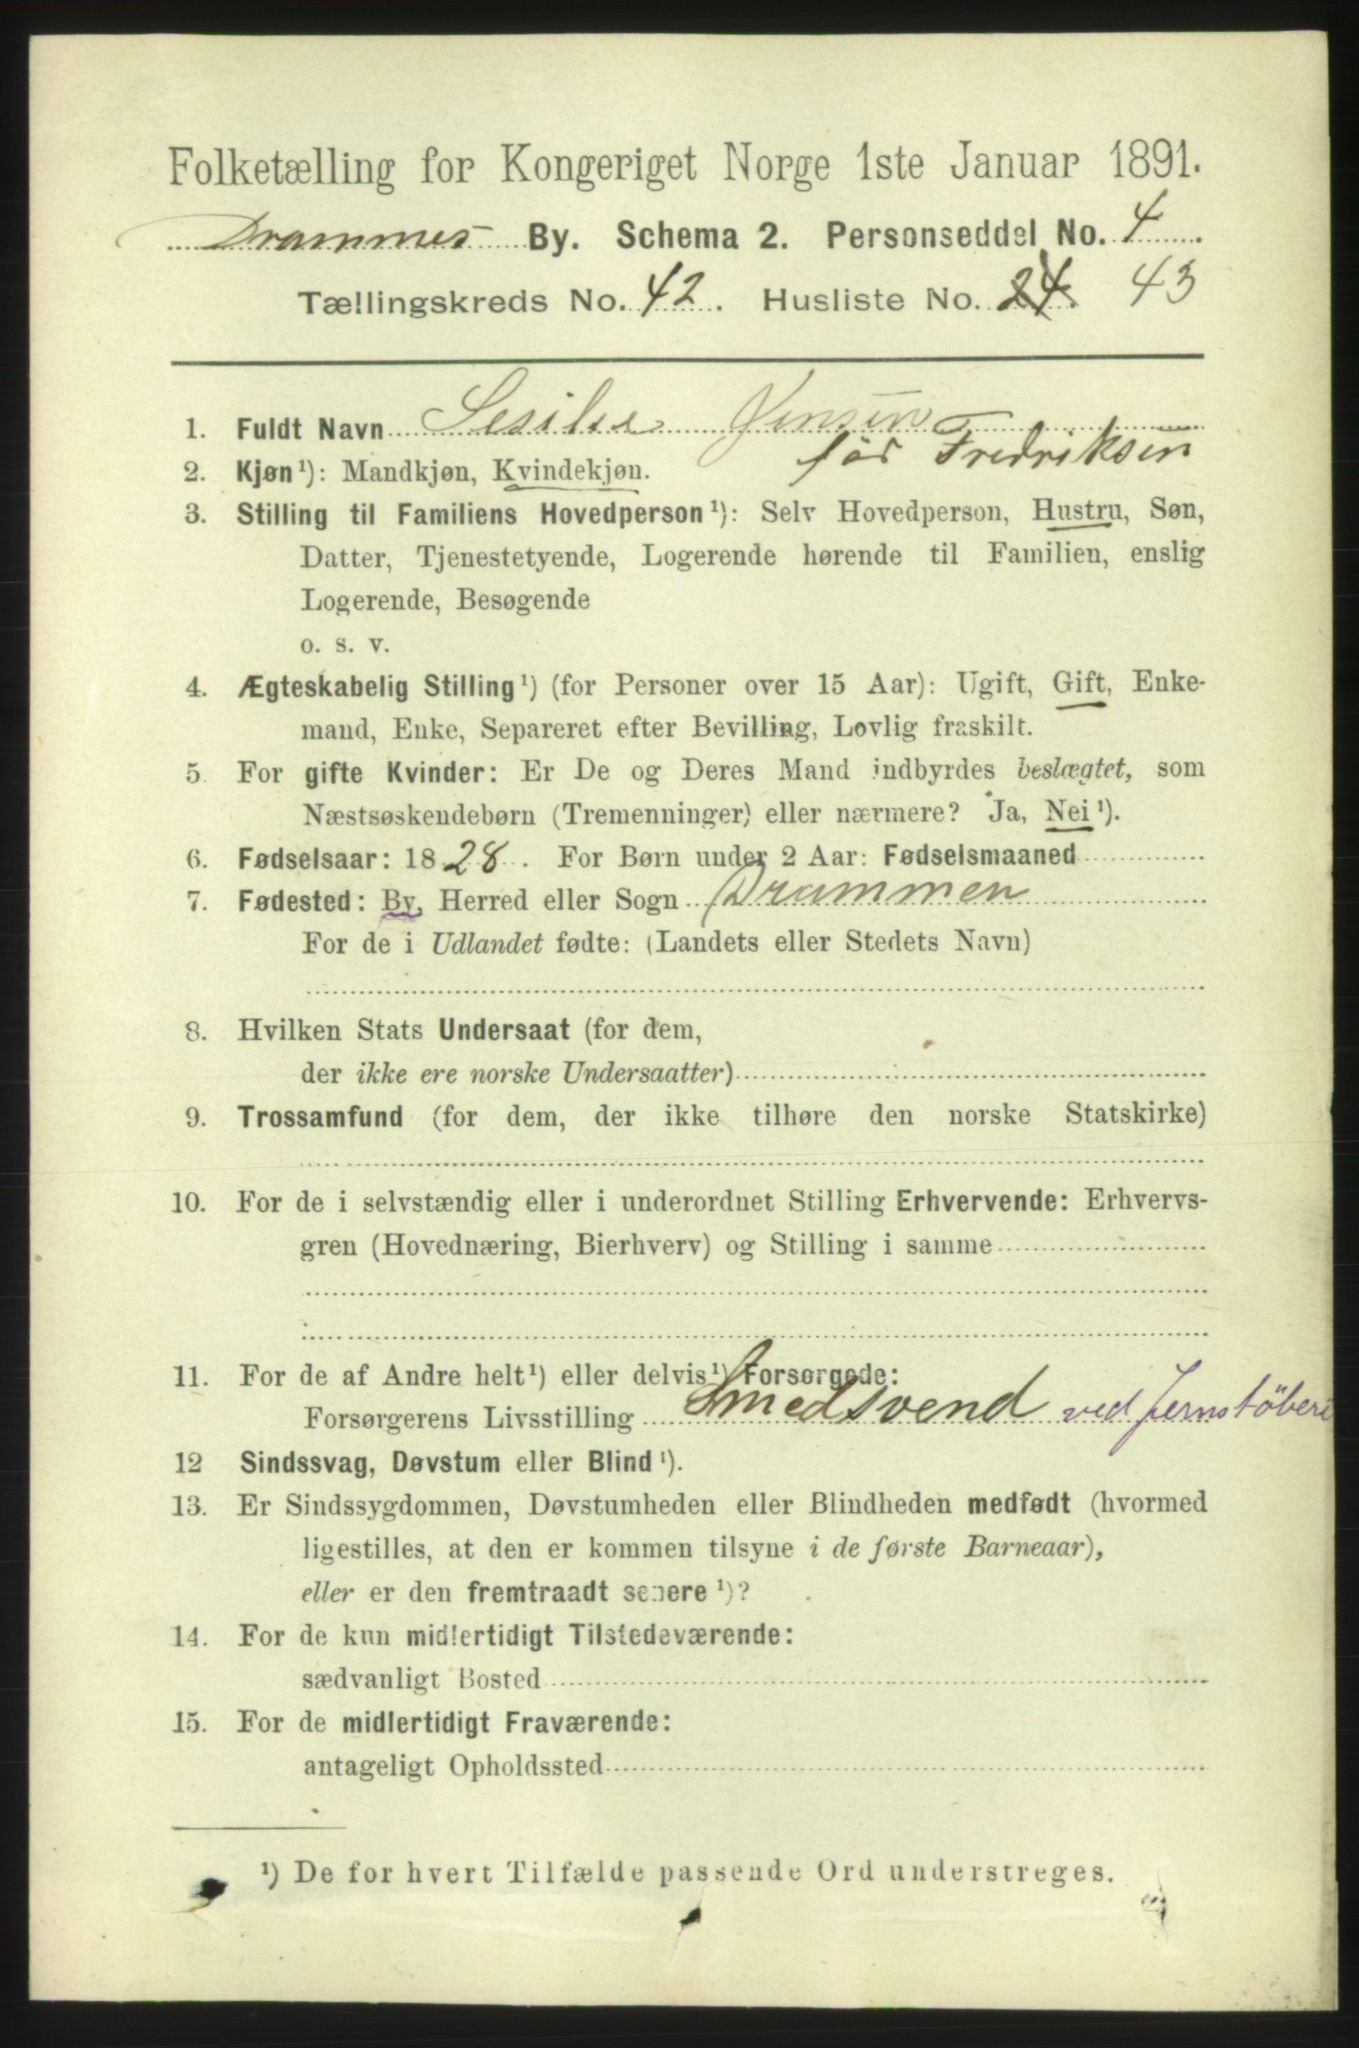 Folketælling for Kongeriget Norge 1ste Januar 1891.
Drammes By. Schema 2. Personseddel No. 4
Tællingskreds No. 42. Husliste No. 24. 43
1. Fuldt Navn Sesilie Jensen
før Fredriksen
2. Kjøn¹): Mandkjøn, Kvindekjøn.
3. Stilling til Familiens Hovedperson¹): Selv Hovedperson, Hustru, Søn,
Datter, Tjenestetyende, Logerende hørende til Familien, enslig
Logerende, Besøgende
o. s. v.
4. Ægteskabelig Stilling¹) (for Personer over 15 Aar): Ugift, Gift, Enke-
mand, Enke, Separeret efter Bevilling, Lovlig fraskilt.
5 For gifte Kvinder: Er De og Deres Mand indbyrdes beslægtet, som
Næstsøskendebørn (Tremenninger) eller nærmere? Ja, Nei¹).
6. Fødselsaar: 1828. For Børn under 2 Aar: Fødselsmaaned
7. Fødested: By, Herred eller Sogn Drammen
For de i Udlandet fødte: (Landets eller Stedets Navn)
8. Hvilken Stats Undersaat (for dem,
der ikke ere norske Undersaatter)
9. Trossamfund (for dem, der ikke tilhøre den norske Statskirke)
10. For de i selvstændig eller i underordnet Stilling Erhvervende: Erhvervs-
gren (Hovednæring, Bierhverv) og Stilling i samme
11. For de af Andre helt¹) eller delvis¹) Forsørgede:
Forsørgerens Livsstilling Smedsvend ved Jernstöberi
12 Sindssvag, Døvstum eller Blind¹).
13. Er Sindssygdommen, Døvstumheden eller Blindheden medfødt (hvormed
ligestilles, at den er kommen tilsyne i de første Barneaar),
eller er den fremtraadt senere¹)?
14. For de kun midlertidigt Tilstedeværende:
sædvanligt Bosted
15. For de midlertidigt Fraværende:
antageligt Opholdssted
¹) De for hvert Tilfælde passende Ord understreges.